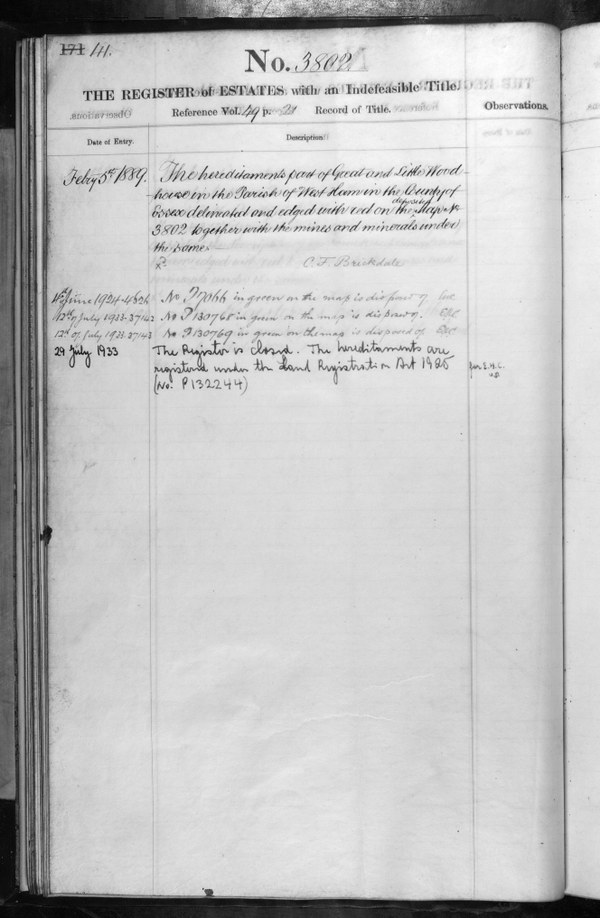 171 141.
No. 3802
THE REGISTER of ESTATES with an Indefeasible Title.
Reference Vol. 49 p. 21 Record of Title. Observations.
Date of Entry. Description
Febry 5th 1889. The hereditaments part of Great and Little Wood-
house in the Parish of West Ham in the County of
Essex delineated and edged with red on the deposited Map No
3802 together with the mines and minerals under
the same
C. F. Brickdale
June 1924 No P in green on the map is disposed of.
12th of July 1933 37143 No P130768 in green on the map is disposed of.
12th of July 1933 37143 No P130769 in green on the map is disposed of
29 July 1933 The Register is closed. The hereditaments are
registered under the Land Registration Act 1925
(No. P132244)